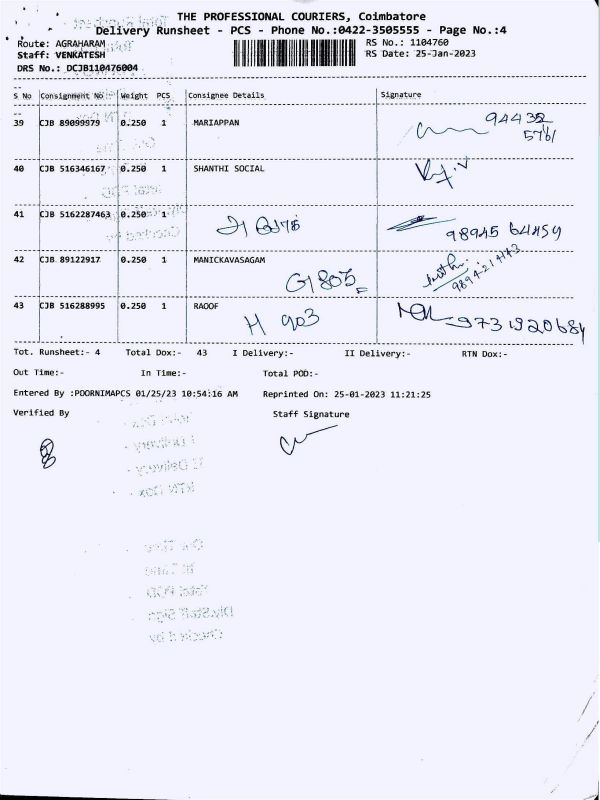 THE PROFESSIONAL COURIERS, Coimbatore
Delivery Runsheet - PCS - Phone No.:0422-3505555 - Page No.:4
Route: AGRAHARAM RS No.: 1104760
Staff: VENKATESH RS Date: 25-Jan-2023
DRS No.: DCJB110476004
S No Consignment No Weight PCS Consignee Details Signature
39 CJB 89099979 0.250 1 MARIAPPAN 94432
5761
40 CJB 516346167 0.250 1 SHANTHI SOCIAL
41 CJB 5162287463 0.250 1 98945 64454
42 CJB 89122917 0.250 1 MANICKAVASAGAM
G1805
43 CJB 516288995 0.250 1 RAOOF
H 903 9731920684
Tot. Runsheet:- 4 Total Dox:- 43 I Delivery:- II Delivery:- RTN Dox:-
Out Time:- In Time:- Total POD:-
Entered By :POORNIMAPCS 01/25/23 10:54:16 AM Reprinted On: 25-01-2023 11:21:25
Verified By Staff Signature